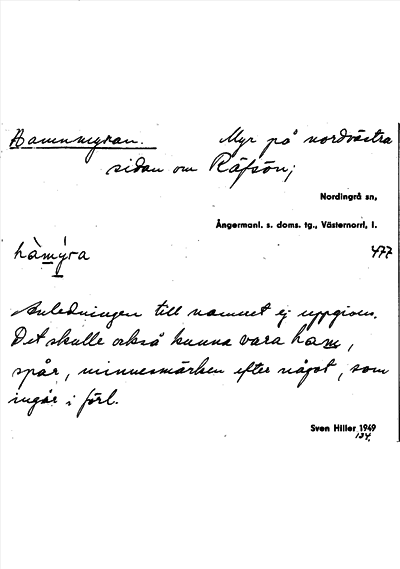 Hamnmyran. Myr på nordvästra
sidan om Räfsön;
Nordingrå sn,
Ångermanl. s. doms. tg., Västernorrl, l.
hàmýra 477
Anledningen till namnet ej uppgiven.
Det skulle också kunna vara ham,
spår, minnesmärken efter något, som
ingår i förl.
Sven Hiller 1949
134.